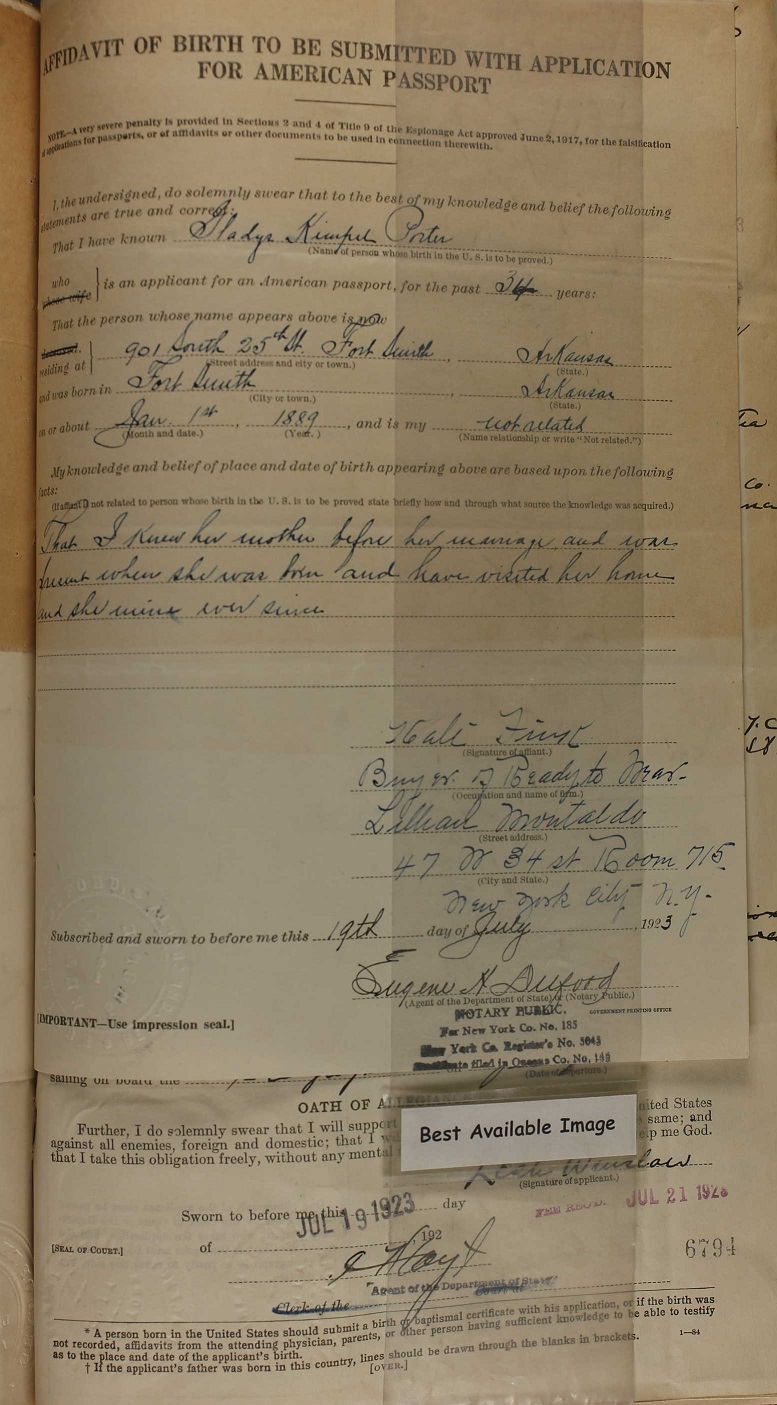 AFFIDAVIT OF BIRTH TO BE SUBMITTED WITH APPLICATION
FOR AMERICAN PASSPORT
NOTE.—A very severe penalty is provided in Sections 2 and 4 of Title 9 of the Espionage Act approved June 2, 1917, for the falsification
of applications for passports, or of affidavits or other documents to be used in connection therewith.
I, the undersigned, do solemnly swear that to the best of my knowledge and belief the following
statements are true and correct:
That I have known Gladys Kimpel Porter
(Name of person whose birth in the U. S. is to be proved.)
who
whose wife
is an applicant for an American passport, for the past 34 years:
That the person whose name appears above is now
deceased.
residing at 901 South 25th St. Fort Smith, Arkansas
(Street address and city or town.) (State.)
and was born in Fort Smith, Arkansas
(City or town.) (State.)
on or about Jan. 1st, 1889, and is my not related
(Month and date.) (Year.) (Name relationship or write "Not related.")
My knowledge and belief of place and date of birth appearing above are based upon the following
facts:
(If affiant is not related to person whose birth in the U. S. is to be proved state briefly how and through what source the knowledge was acquired.)
That I knew her mother before her marriage and was
present when she was born and have visited her home
and she mine ever since
(Signature of affiant.)
Buyer of Ready to Wear-
(Occupation and name of firm.)
Lillian Montaldo
(Street address.)
47 W 34 st Room 715
(City and State.)
New York City N.Y.
Subscribed and sworn to before me this 19th day of July, 1923
Eugene H
(Agent of the Department of State) or (Notary Public.)
NOTARY PUBLIC.
GOVERNMENT PRINTING OFFICE
For New York Co. No. 185
[IMPORTANT—Use impression seal.]
New York Co. Register's No. 5043
Certificate filed in Queens Co. No. 149
sailing on board the
(Date of departure.)
OATH OF ALLEGIANCE
Further, I do solemnly swear that I will support United States
against all enemies, foreign and domestic; that I same; and
that I take this obligation freely, without any mental help me God.
Best Available Image
Winslow
(Signature of applicant.)
Sworn to before me this day
JUL 19 1923
FEE REC'D. JUL 21 1923
[SEAL OF COURT.] of , 192
Hoyt
6794
Agent of the Department of State
Clerk of the Court at
* A person born in the United States should submit a birth or baptismal certificate with his application, or if the birth was
not recorded, affidavits from the attending physician, parents, or other person having sufficient knowledge to be able to testify
as to the place and date of the applicant's birth.
† If the applicant's father was born in this country, lines should be drawn through the blanks in brackets.
[OVER.]
1—84